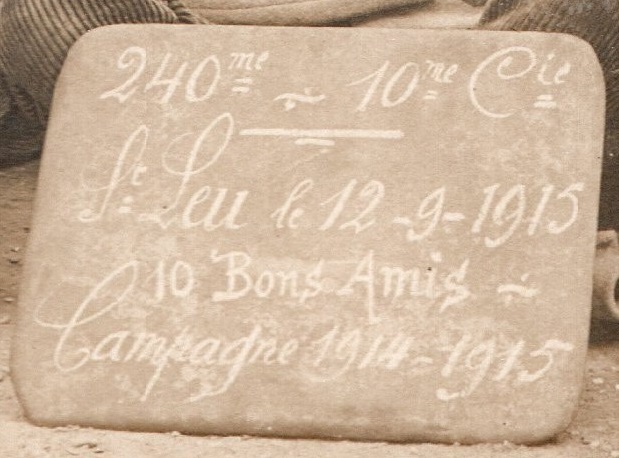 240me ÷ 10me Cie
St Leu le 12-9-1915
10 Bons Amis ÷
Campagne 1914-1915